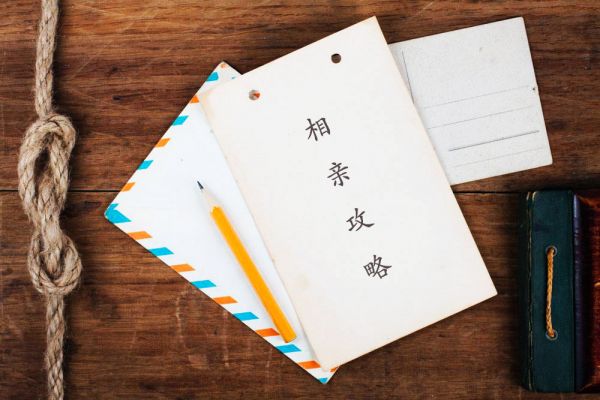 相亲攻略